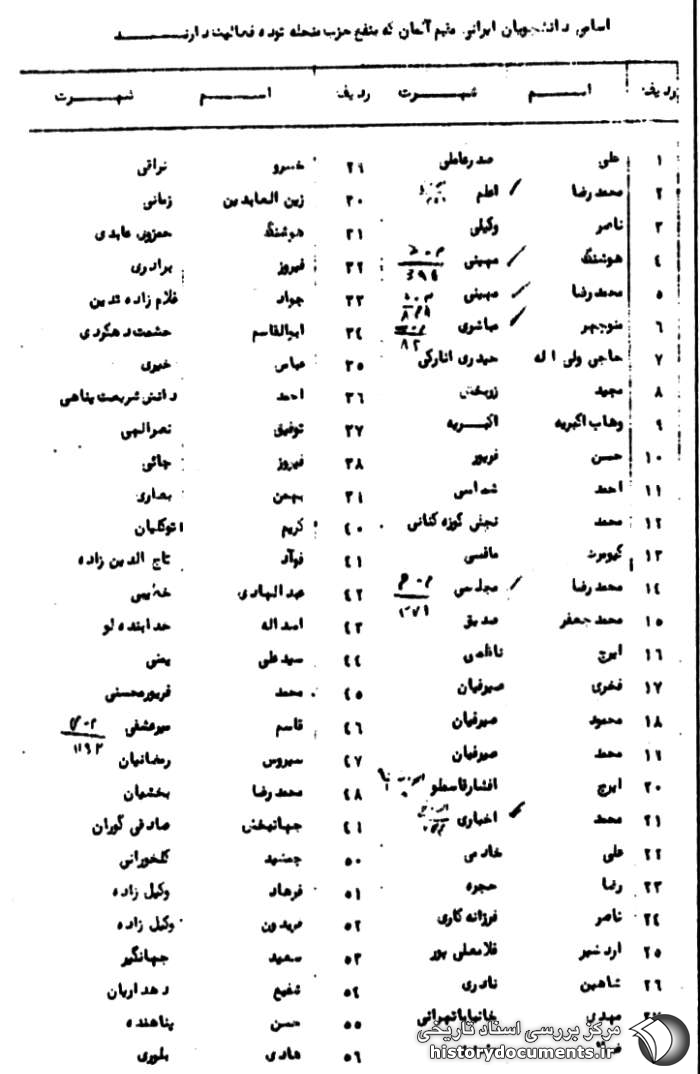 اسامی دانشجویان ایرانی مقیم آلمان که بنفع حزب منحله توده فعالیت دارند
ردیف اسم شهرت ردیف اسم شهرت
۱ علی صدرعاملی ۲۹ خسرو نراقی
۲ محمدرضا اعلم ۳۰ زین العابدین زمانی
۳ ناصر وکیلی ۳۱ هوشنگ حمزوی عابدی
۴ هوشنگ مهینی ۳۲ فیروز برادری
۵ محمدرضا مهینی ۳۳ جواد غلام زاده تدین
۶ منوچهر مباشری ۳۴ ابوالقاسم حشمت دهکردی
۷ حاجی ولی اله حیدری انارکی ۳۵ عباس خیری
۸ مجید زربخش ۳۶ احمد دانش شریعت پناهی
۹ وهاب اکبریه اکبریه ۳۷ توفیق نصرالهی
۱۰ حسن فریور ۳۸ فیروز
۱۱ احمد شماسی ۳۹ بهمن
۱۲ محمد نجفی کوزه کنانی ۴۰ کریم توکلیان
۱۳ کیومرث ۴۱ فوآد تاج الدین زاده
۱۴ محمدرضا مجلسی ۴۲ عبدالهادی
۱۵ محمدجعفر صدیق ۴۳ اسداله خدابنده لو
۱۶ ایرج ناظمی ۴۴ سیدعلی
۱۷ فخری صیرفیان ۴۵ محمد فریورمحسنی
۱۸ محمود صیرفیان ۴۶ قاسم میرعشقی
۱۹ محمد صیرفیان ۴۷ سیروس رمضانیان
۲۰ ایرج افشارقاسملو ۴۸ محمدرضا بخشیان
۲۱ محمد اخباری ۴۹ جهانبخش صادقی گوران
۲۲ علی خادمی ۵۰ جمشید گلخورانی
۲۳ رضا حجره ۵۱ فرهاد وکیل زاده
۲۴ ناصر فرزانه کاری ۵۲ فریدون وکیل زاده
۲۵ اردشیر غلامعلی پور ۵۳ سعید جهانگیر
۲۶ شاهین نادری ۵۴ شفیع دهداریان
۲۷ مهدی خانباباتهرانی ۵۵ حسن پناهنده
۵۶ هادی بلوری
مرکز بررسی اسناد تاریخی
historydocuments.ir